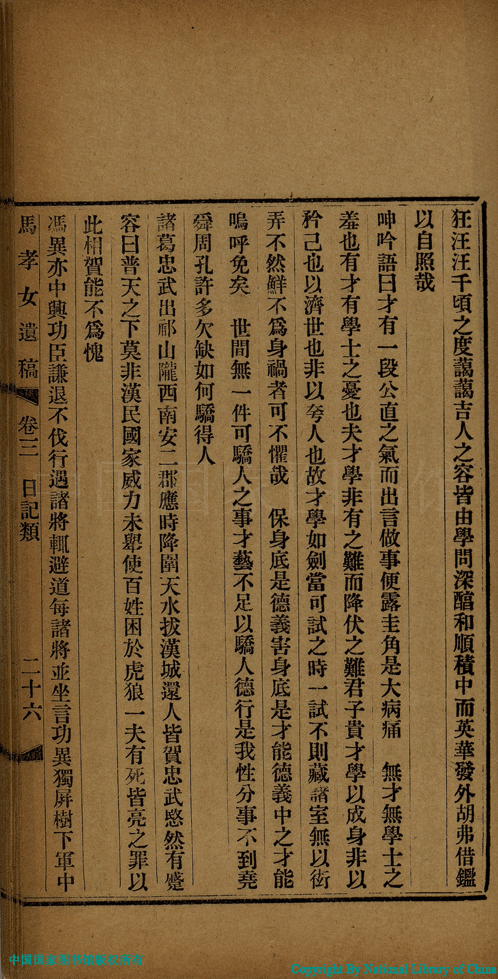 狂汪汪千頃之度藹藹吉人之容皆由學問深醕和順積中而英華發外胡弗借鑑
以自照哉
呻吟語曰才有一段公直之氣而出言做事便露圭角是大病痛　無才無學士之
羞也有才有學士之憂也夫才學非有之難而降伏之難君子貴才學以成身非以
矜己也以濟世也非以夸人也故才學如劍當可試之時一試不則藏諸室無以衒
弄不然鮮不爲身禍者可不懼哉　保身底是德義害身底是才能德義中之才能
嗚呼免矣　世間無一件可驕人之事才藝不足以驕人德行是我性分事不到堯
舜周孔許多欠缺如何驕得人
諸葛忠武出祁山隴西南安二郡應時降圍天水拔漢城還人皆賀忠武愍然有蹙
容曰普天之下莫非漢民國家威力未舉使百姓困於虎狼一夫有死皆亮之罪以
此相賀能不爲愧
馮異亦中興功臣謙退不伐行遇諸將輒避道每諸將並坐言功異獨屏樹下軍中
馬孝女遺稿　卷三　日記類　二十六
中国国家图书馆版权所有
Copyright By National Library of China